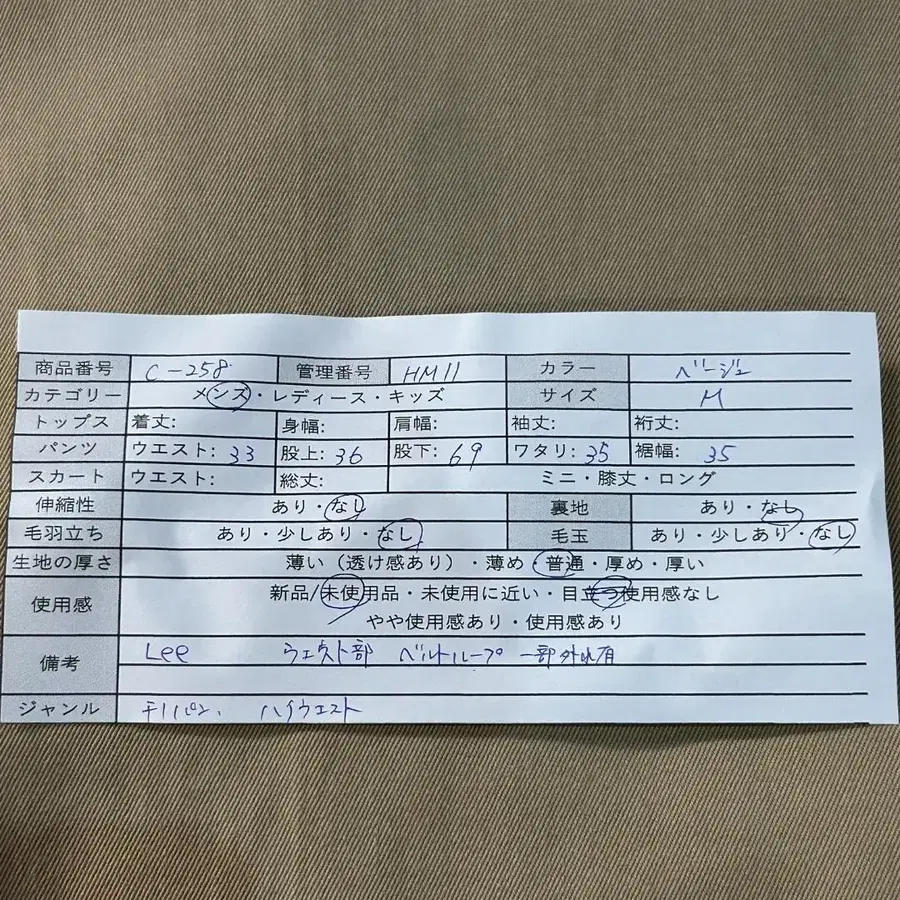 商品番号 C-258 管理番号 HM11 カラー ベージュ
カテゴリー メンズ・レディース・キッズ サイズ M
トップス 着丈: 身幅: 肩幅: 袖丈: 裄丈:
パンツ ウエスト: 33 股上: 36 股下: 69 ワタリ: 35 裾幅: 35
スカート ウエスト: 総丈: ミニ・膝丈・ロング
伸縮性 あり・なし 裏地 あり・なし
毛羽立ち あり・少しあり・なし 毛玉 あり・少しあり・なし
生地の厚さ 薄い(透け感あり)・薄め・普通・厚め・厚い
使用感 新品/未使用品・未使用に近い・目立つ使用感なし
やや使用感あり・使用感あり
備考 Lee ウエスト部 ベルトループ 一部外れ有
ジャンル チノパン、ハイウエスト